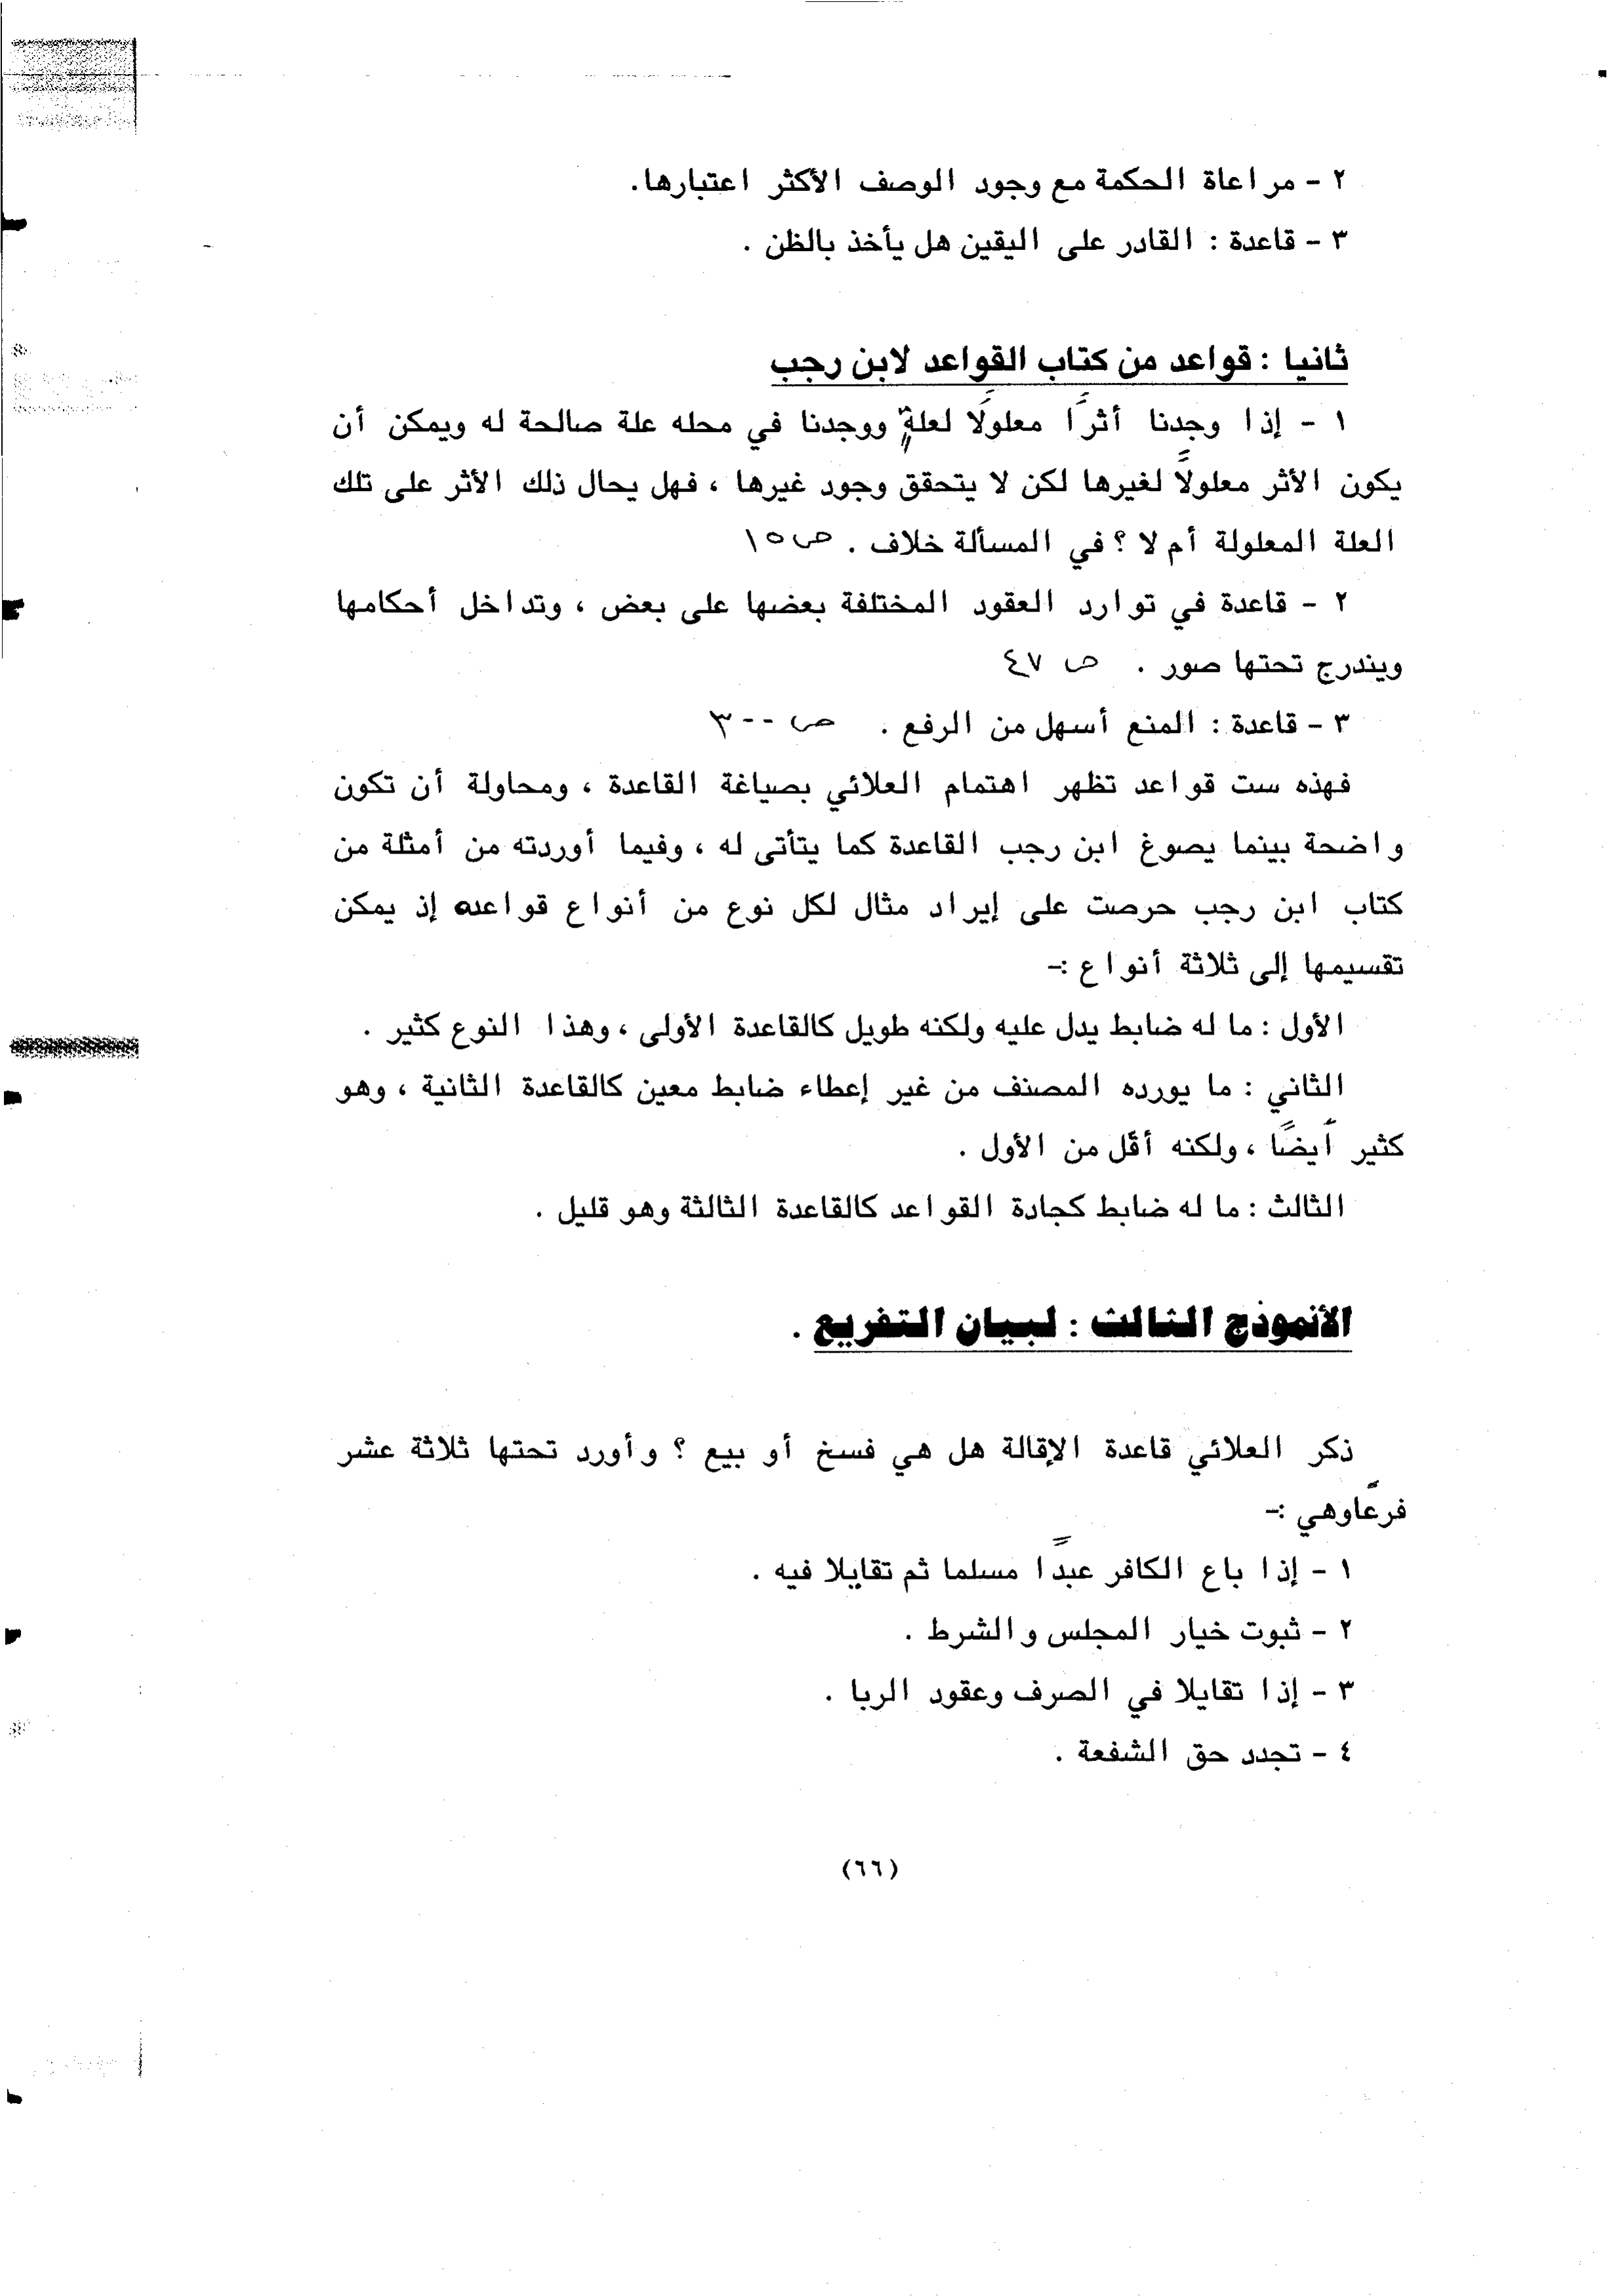 ٢ - مراعاة الحكمة مع وجود الوصف الأكثر اعتبارها.
٣ - قاعدة : القادر على اليقين هل يأخذ بالظن .
ثانيا : قواعد من كتاب القواعد لابن رجب
١ - إذا وجدنا أثرًا معلولًا لعلةٍ ووجدنا في محله علة صالحة له ويمكن أن
يكون الأثر معلولاً لغيرها لكن لا يتحقق وجود غيرها ، فهل يحال ذلك الأثر على تلك
العلة المعلولة أم لا ؟ في المسألة خلاف . ص ١٥
٢ - قاعدة في توارد العقود المختلفة بعضها على بعض ، وتداخل أحكامها
ويندرج تحتها صور . ص ٤٧
٣ - قاعدة : المنع أسهل من الرفع . ص ٣٠٠
فهذه ست قواعد تظهر اهتمام العلائي بصياغة القاعدة ، ومحاولة أن تكون
واضحة بينما يصوغ ابن رجب القاعدة كما يتأتى له ، وفيما أوردته من أمثلة من
كتاب ابن رجب حرصت على إيراد مثال لكل نوع من أنواع قواعده إذ يمكن
تقسيمها إلى ثلاثة أنواع :-
الأول : ما له ضابط يدل عليه ولكنه طويل كالقاعدة الأولى ، وهذا النوع كثير .
الثاني : ما يورده المصنف من غير إعطاء ضابط معين كالقاعدة الثانية ، وهو
كثير أيضًا ، ولكنه أقل من الأول .
الثالث : ما له ضابط كجادة القواعد كالقاعدة الثالثة وهو قليل .
الأنموذج الثالث : لبيان التفريع .
ذكر العلائي قاعدة الإقالة هل هي فسخ أو بيع ؟ وأورد تحتها ثلاثة عشر
فرعًاوهي :-
١ - إذا باع الكافر عبدًا مسلما ثم تقايلا فيه .
٢ - ثبوت خيار المجلس والشرط .
٣ - إذا تقايلا في الصرف وعقود الربا .
٤ - تجدد حق الشفعة .
(٦٦)